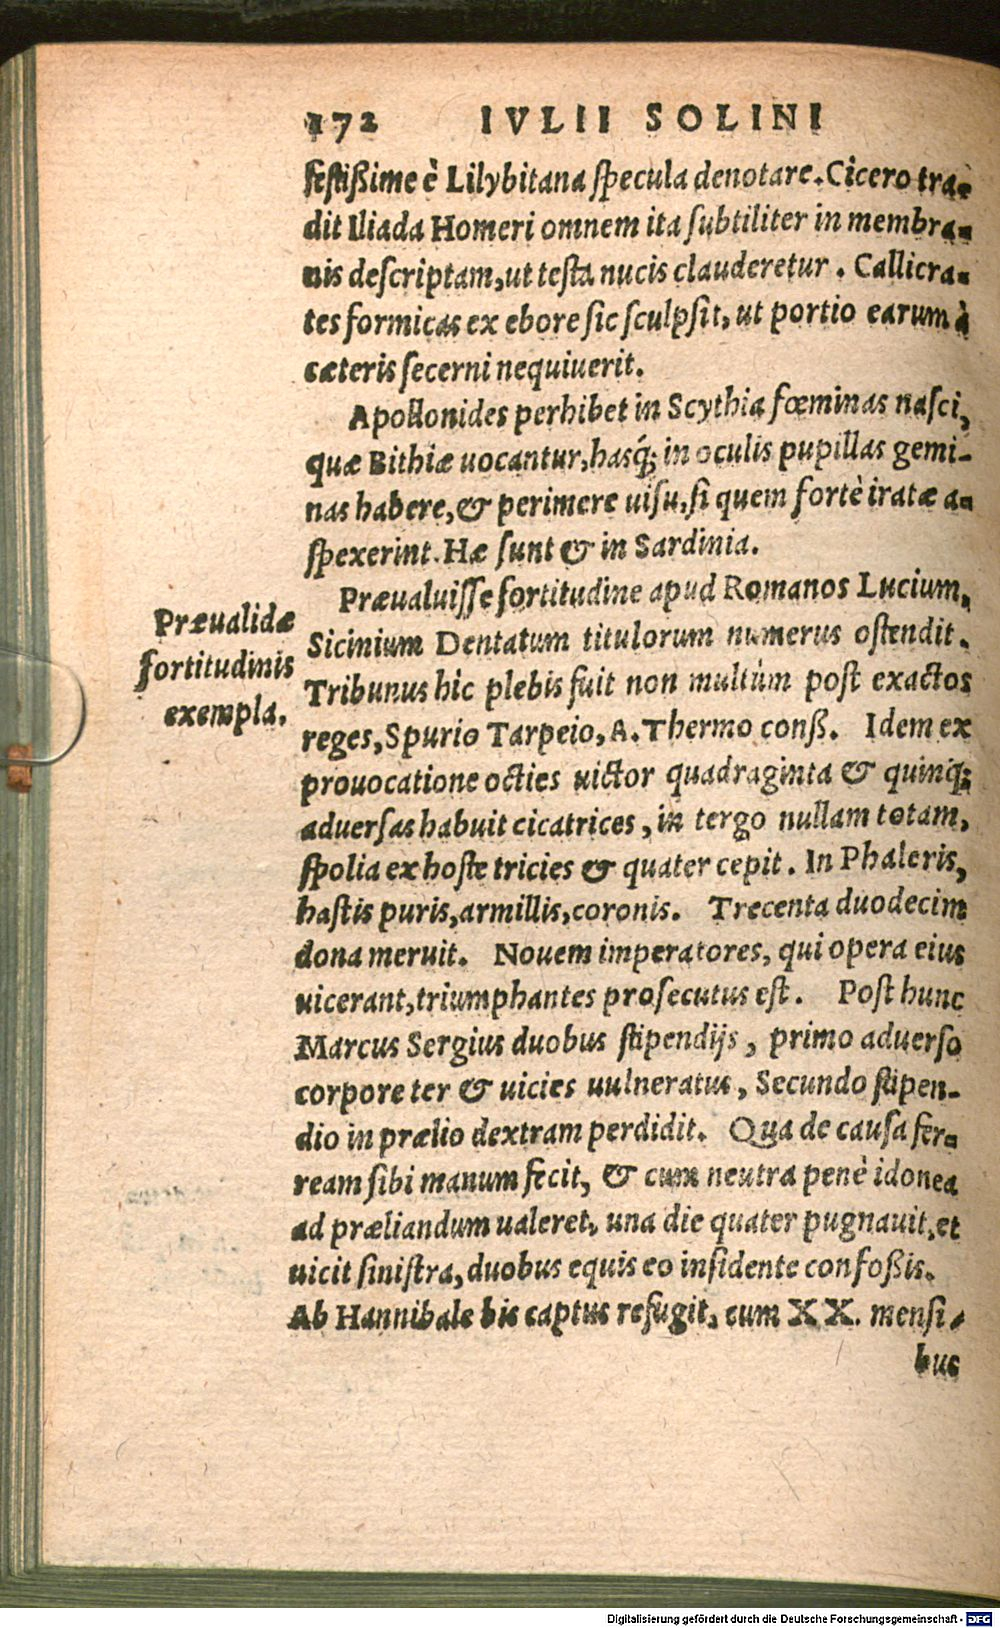 172 IVLII SOLINI
feſtißime è Lilybitana ſpecula denotare. Cicero tra-
dit Iliada Homeri omnem ita ſubtiliter in membra-
nis deſcriptam, ut teſta nucis clauderetur. Callicra-
tes formicas ex ebore ſic ſculpſit, ut portio earum à
cæteris ſecerni nequiuerit.
Apollonides perhibet in Scythia fœminas naſci,
quæ Bithiæ uocantur, hasq́; in oculis pupillas gemi-
nas habere, & perimere uiſu, ſi quem fortè iratæ a-
ſpexerint. Hæ ſunt & in Sardinia.
Præualuiſſe fortitudine apud Romanos Lucium,
Sicinium Dentatum titulorum numerus oſtendit.
Tribunus hic plebis fuit non multùm poſt exactos
reges, Spurio Tarpeio, A. Thermo conß. Idem ex
prouocatione octies uictor quadraginta & quinq́;
aduerſas habuit cicatrices, in tergo nullam totam,
ſpolia ex hoſte tricies & quater cepit. In Phaleris,
haſtis puris, armillis, coronis. Trecenta duodecim
dona meruit. Nouem imperatores, qui opera eius
uicerant, triumphantes proſecutus eſt. Poſt hunc
Marcus Sergius duobus ſtipendijs, primo aduerſo
corpore ter & uicies uulneratus, Secundo ſtipen-
dio in prælio dextram perdidit. Qua de cauſa fer-
ream ſibi manum fecit, & cum neutra penè idonea
ad præliandum ualeret, una die quater pugnauit, et
uicit ſiniſtra, duobus equis eo inſidente confoßis.
Ab Hannibale bis captus refugit, cum XX. menſi-
bus
Præualidæ
fortitudinis
exempla.
Digitalisierung gefördert durch die Deutsche Forschungsgemeinschaft - DFG